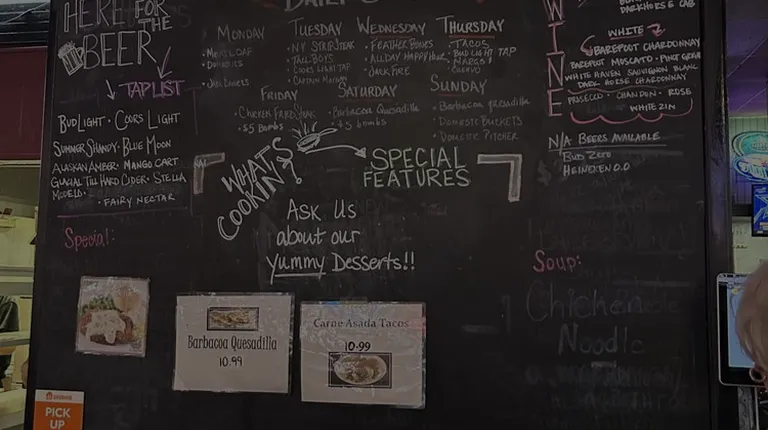 HERE FOR
THE
BEER
TAP LIST
BUD LIGHT · COORS LIGHT
SUMMER SHANDY · BLUE MOON
ALASKAN AMBER · MANGO CART
GLACIAL TILL HARD CIDER · STELLA
MODELO · FAIRY NECTAR
Special:
MONDAY
MEATLOAF
TUESDAY
NY STRIP STEAK
TALL BOYS
COORS LIGHT TAP
CAPTAIN MORGAN
WEDNESDAY
FEATHER BONES
ALL DAY HAPPY HOUR
JACK FIRE
THURSDAY
TACOS
BUD LIGHT TAP
MARGS
CUERVO
FRIDAY
CHICKEN FRIED STEAK
$5 BOMBS
SATURDAY
Barbacoa Quesadilla
$5 bombs
SUNDAY
Barbacoa quesadilla
DOMESTIC BUCKETS
DOMESTIC PITCHER
WHAT'S
COOKIN?
SPECIAL
FEATURES
ASK US
about our
yummy DESSERTS!!
Barbacoa Quesadilla
10.99
Carne Asada Tacos
10.99
WINE
DARKHORSE CAB
WHITE
BAREFOOT CHARDONNAY
BAREFOOT MOSCATO · PINOT GRIGIO
WHITE HAVEN SAUVIGNON BLANC
DARK HORSE CHARDONNAY
PROSECCO · CHANDON · ROSE
WHITE ZIN
N/A BEERS AVAILABLE
BUD ZERO
HEINEKEN 0.0
Soup:
Chicken
Noodle
PICK
UP